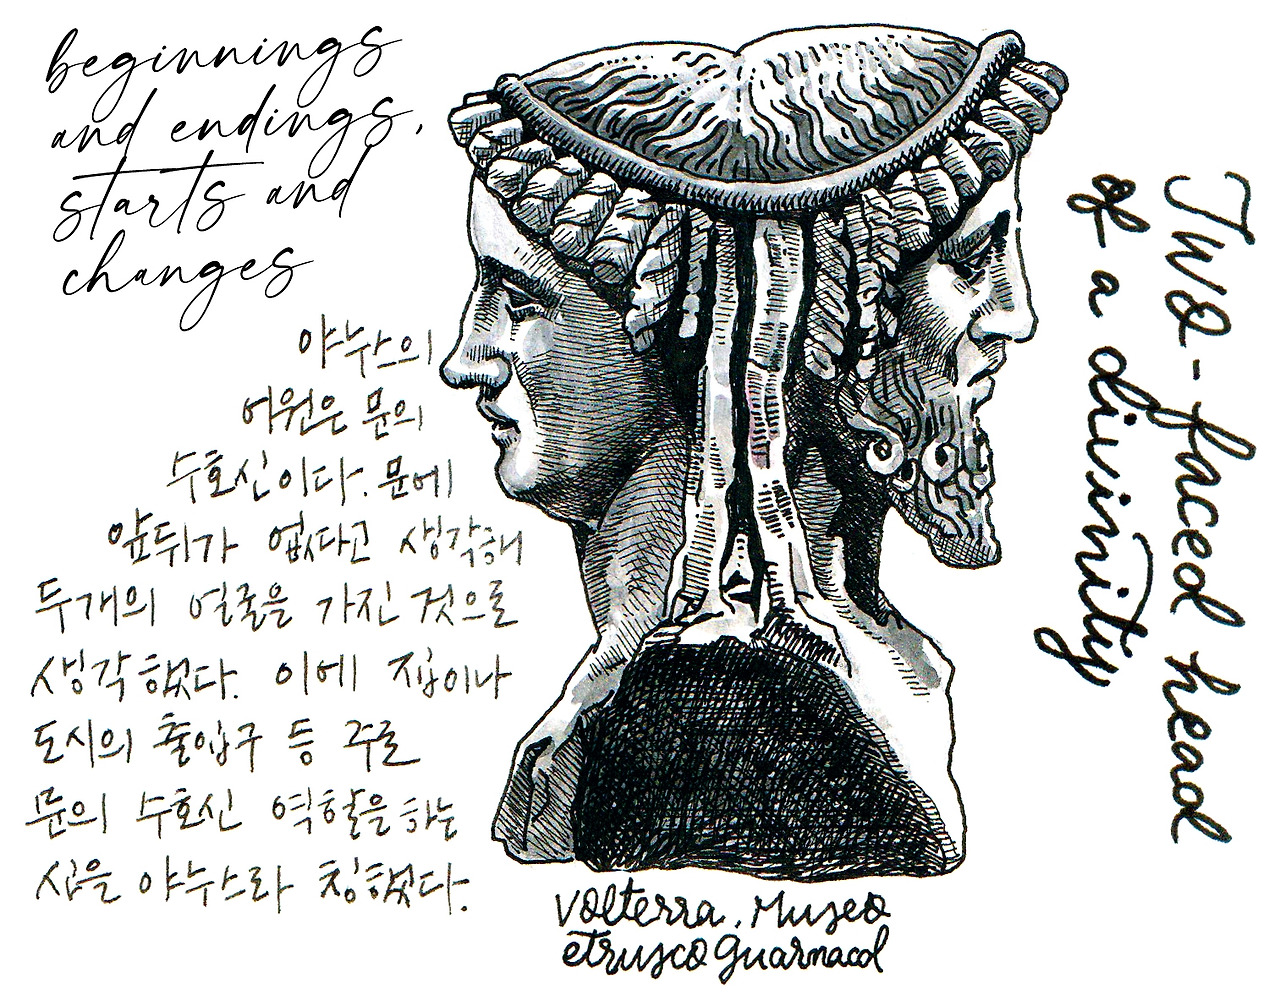 beginnings
and endings,
starts and
changes
야누스의
어원은 문의
수호신이다. 문에
앞뒤가 없다고 생각해
두개의 얼굴을 가진 것으로
생각했다. 이에 집이나
도시의 출입구 등 주로
문의 수호신 역할을 하는
신을 야누스라 칭했다.
Two-faced head
of a divinity
Volterra, Museo
etrusco Guarnacol